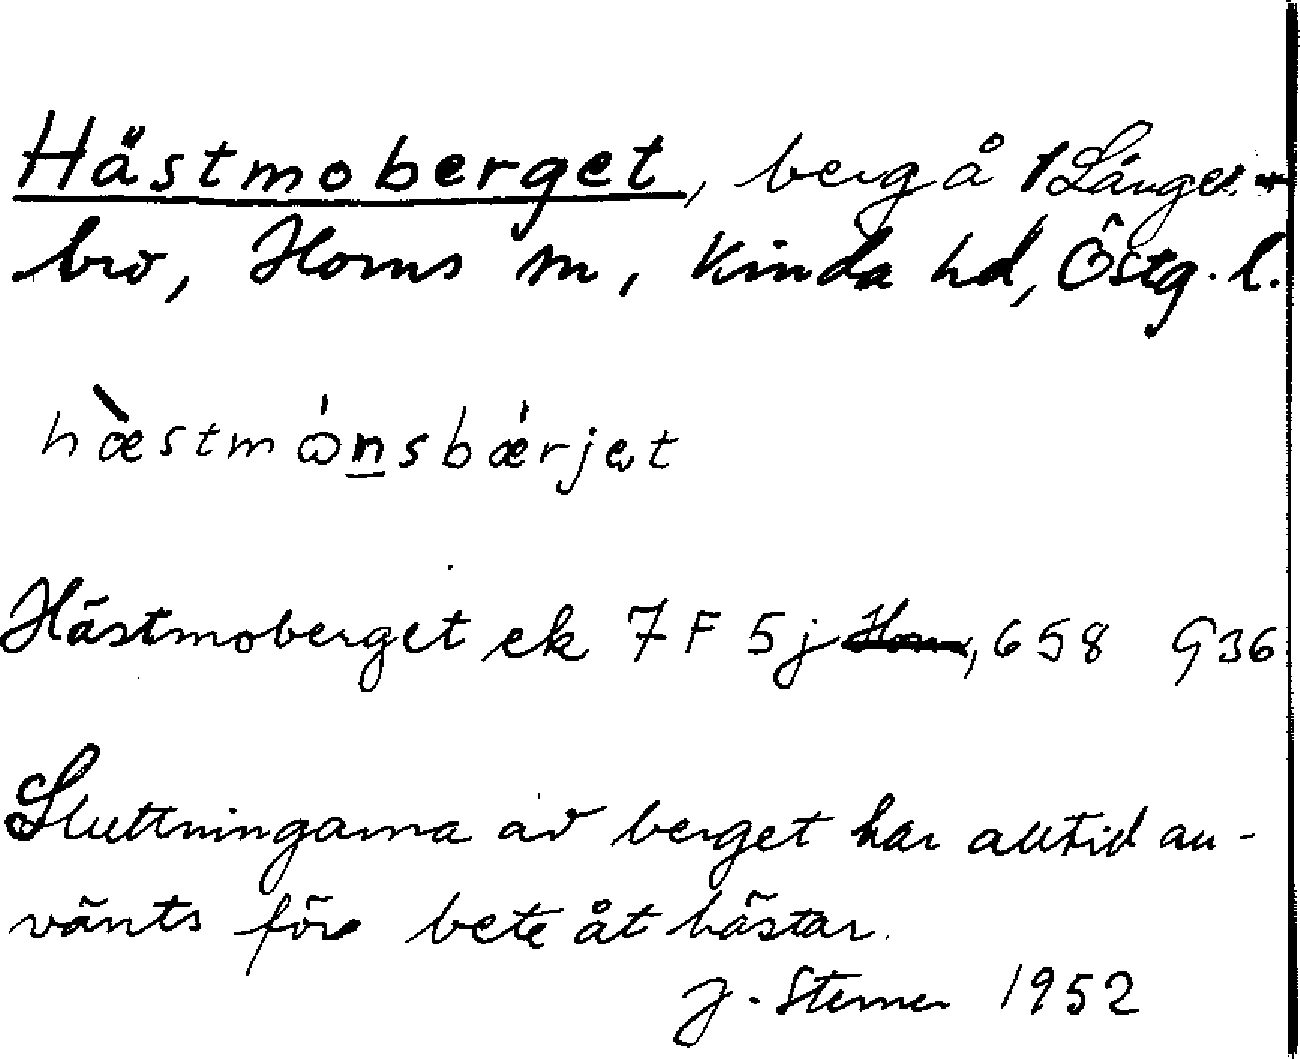 Hästmoberget, berg å 1 Långe-
bro, Horns sn, Kinda hd, Östg. l.
hæ̀stmɷ́nsbǽrjət
Hästmoberget ek 7 F 5 j, 658 936
Sluttningarna av berget har alltid an-
vänts före bete åt hästar.
J. Sterner 1952